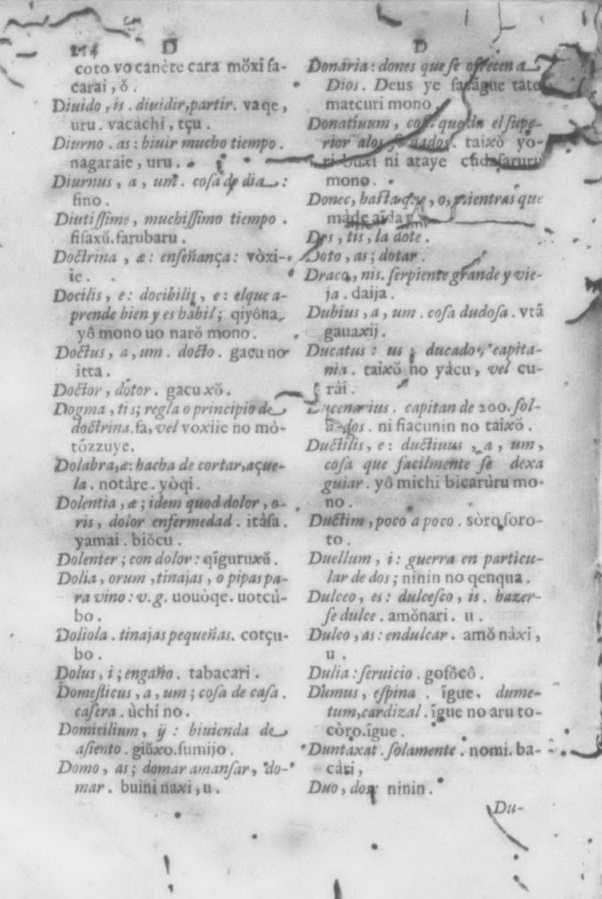 D
coto vo canète cara mŏxi ſa-
carai, ŏ.
Diuido, is. diuidir, partir. vaqe,
uru. vacachi, tçu.
Diurno. as: biuir mucho tiempo.
nagaraie, uru.
Diurnus, a, um. coſa de dia:
fino.
Diutiſſime, muchiſſimo tiempo.
fiſaxŭ. farubaru.
Doctrina, æ: enſeñança: vòxi-
ie.
Docilis, e: docibilis, e: el que a-
prende bien y es habil; qiyôna,
yô mono uo narŏ mono.
Doctus, a, um. docto. gacu no
itta.
Doctor, dotor. gacuxŏ.
Dogma, tis; regla o principio de
doctrina. fa, vel voxiie no mò-
tòzzuye.
Dolabra, æ: hacha de cortar, açue-
la. notàre. yòqi.
Dolentia, æ; idem quod dolor, o-
ris, dolor enfermedad. itàſa.
yamai. biŏcu.
Dolenter; con dolor: qīguruxŭ.
Dolia, orum, tinajas, o pipas pa-
ra vino: v.g. uouòqe. uotcù-
bo.
Doliola. tinajas pequeñas. cotçu-
bo.
Dolus, i; engaño. tabacari.
Domeſticus, a, um; coſa de caſa.
caſera. ùchi no.
Domicilium, ij: biuienda de
aſiento. giŭxo. ſumijo.
Domo, as; domar amanſar, do-
mar. buini naxi, u.
D
Donaria: dones que ſe ofrecen a
Dios. Deus ye ſaſàgue tàto
matcuri mono.
Donatiuum, que da el ſupe-
rior a los ſoldados. taixŏ yo-
ri buxi ni ataye
mono.
Donec, haſta q, o, mientras que
màde aida
Dos, tis, la dote.
Doto, as; dotar.
Draco, nis. ſerpiente grande y vie-
ja. daija.
Dubius, a, um. coſa dudoſa. vtâ
gauaxij.
Ducatus: us; ducado, capita-
nia. taixŏ no yàcu, vel cu-
rài.
Ducenarius. capitan de 200. ſol-
dados. ni fiacunin no taixŏ.
Ductilis, e: ductiuus, a, um,
coſa que facilmente ſe dexa
guiar. yô michi bicarùru mo-
no.
Ductim, poco a poco. sòro ſoro-
to.
Duellum, i: guerra en particu-
lar de dos; ninin no qenqua.
Dulceo, es: dulceſco, is. hazer-
ſe dulce. amŏnari. u.
Dulco, as: endulcar. amŏ nàxi,
u.
Dulia: ſeruicio. goſôcô.
Dumus, eſpina. īgue. dume-
tum, cardizal. īgue no aru to-
còro. īgue.
Duntaxat. ſolamente. nomi. ba-
càri,
Duo, dos: ninin.
Du-